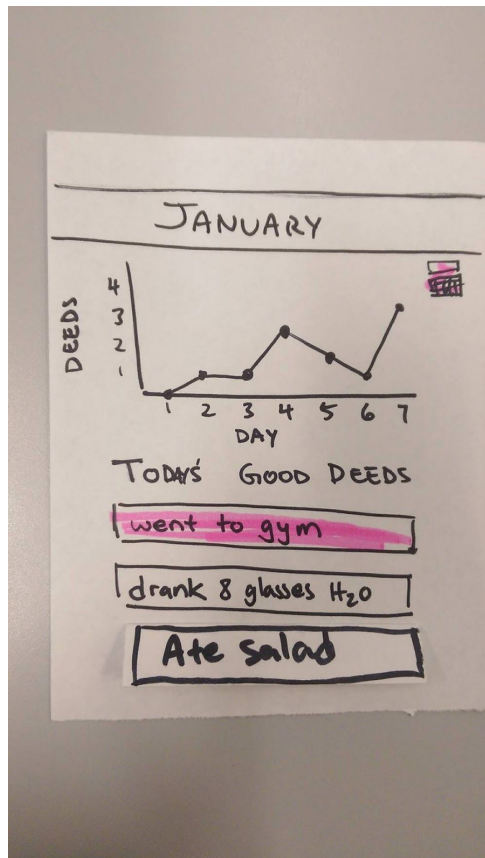 JANUARY
DEEDS
4
3
2
1
1 2 3 4 5 6 7
DAY
TODAY'S GOOD DEEDS
went to gym
drank 8 glasses H₂O
Ate salad